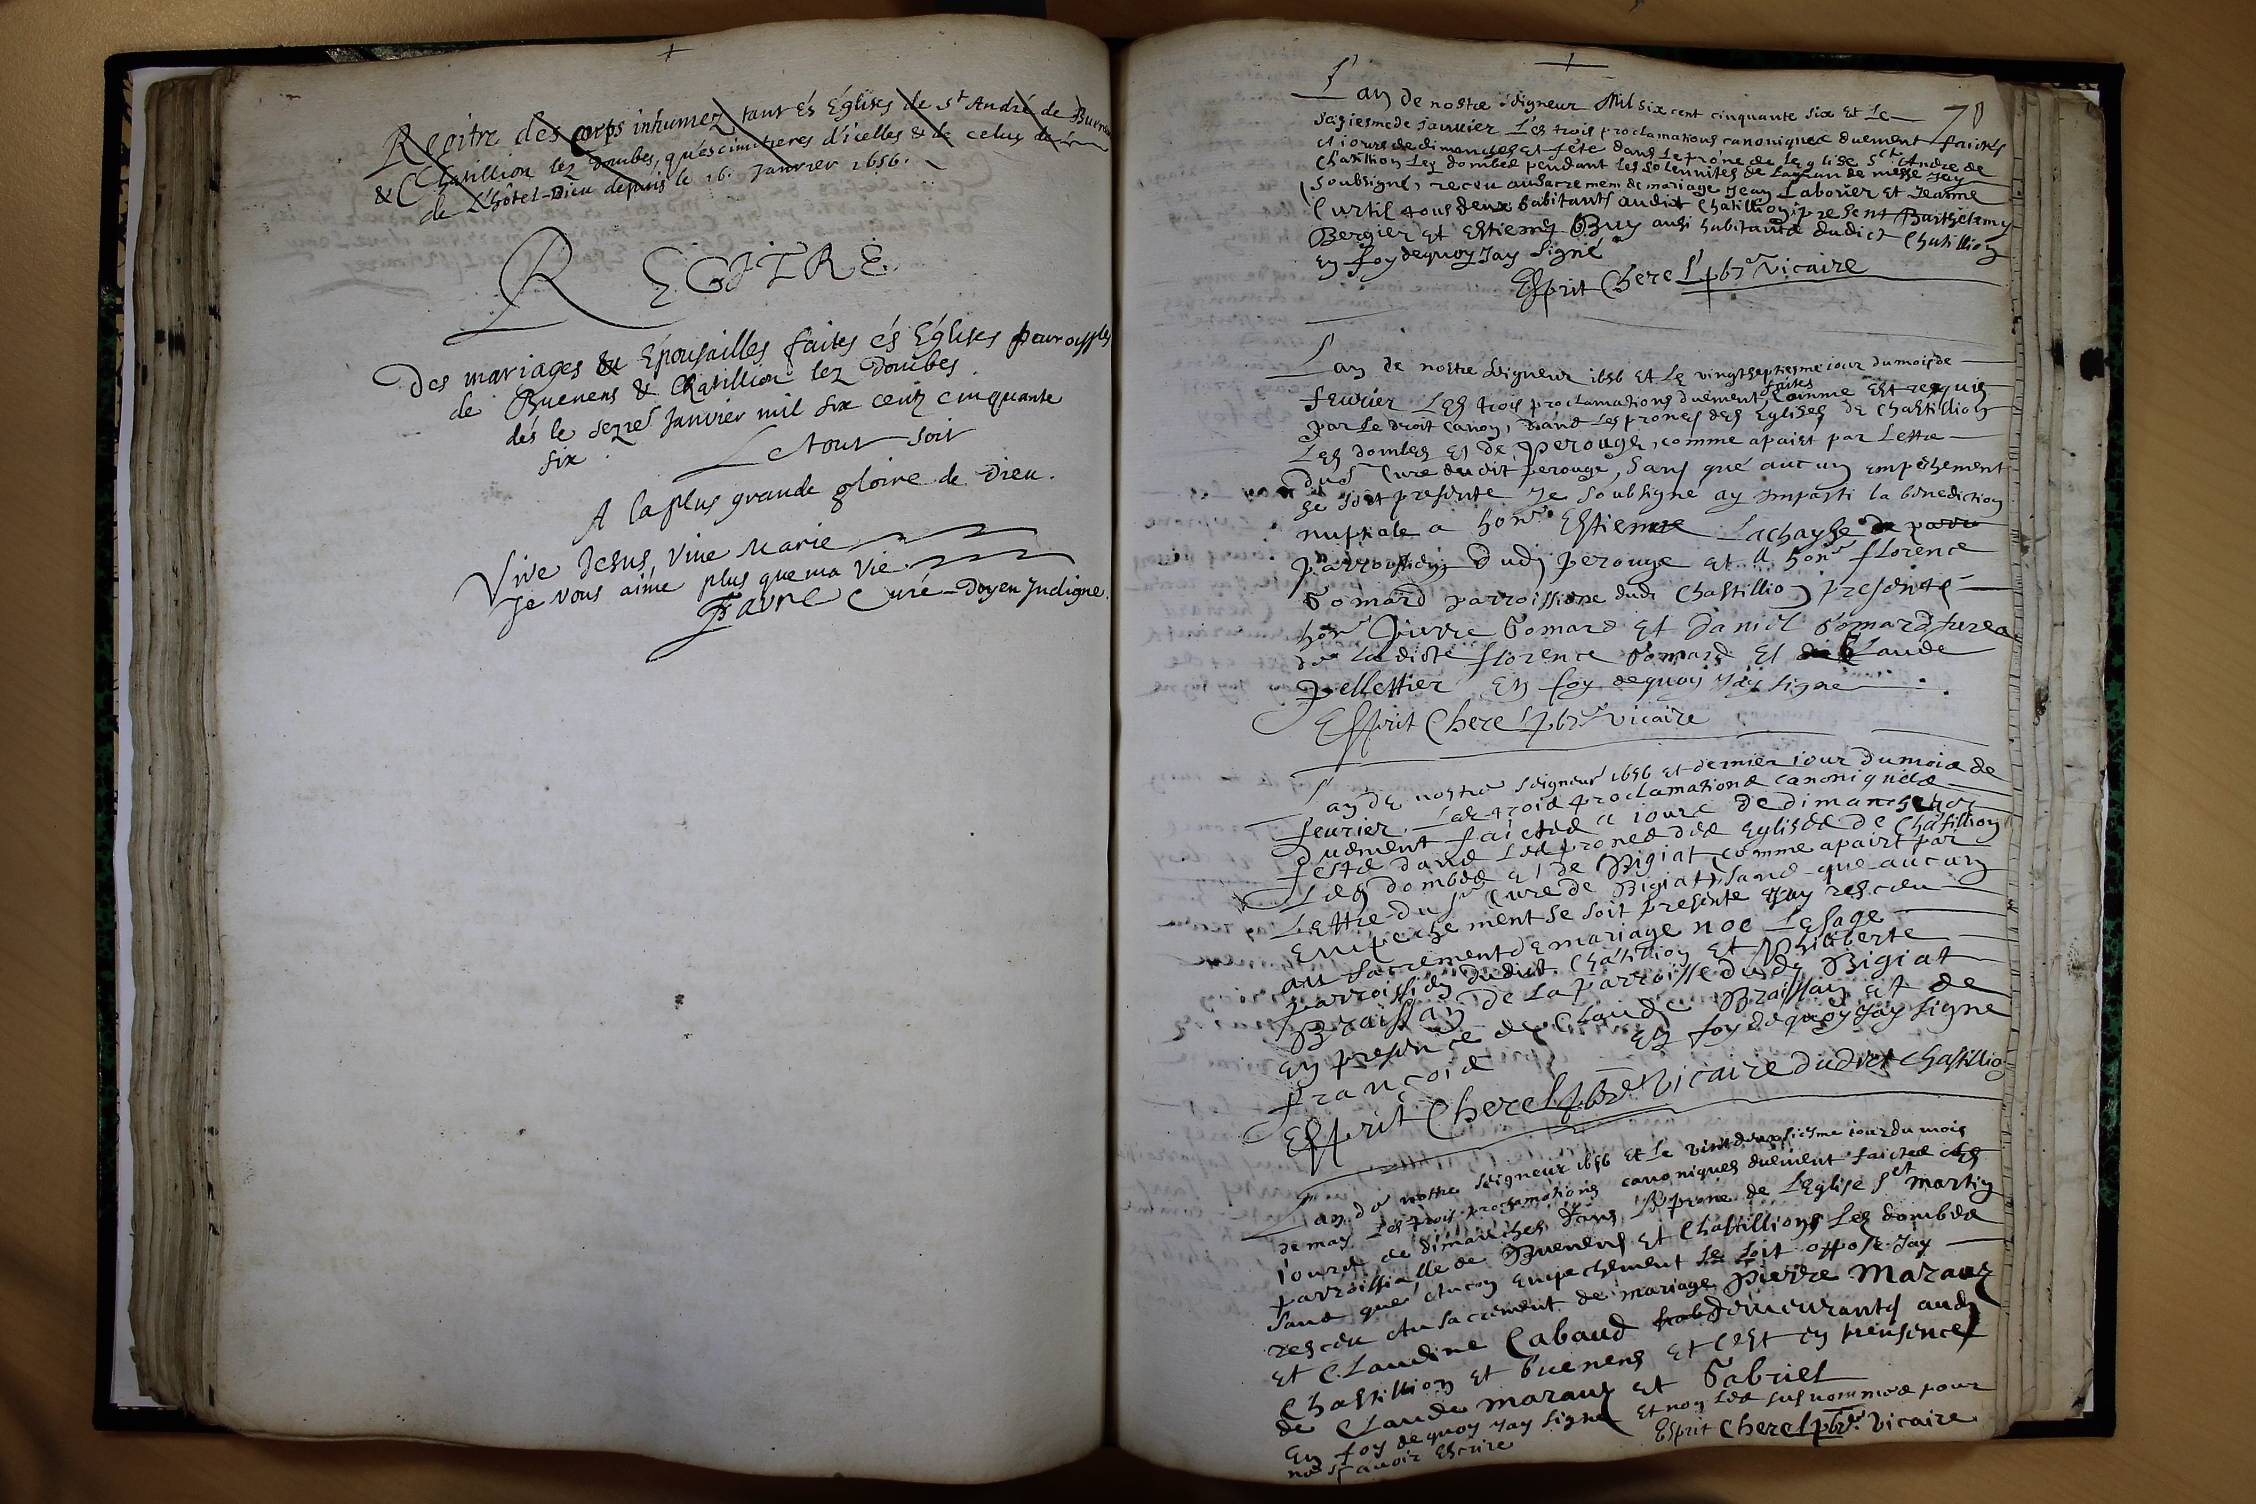 Regitre des corps inhumez tant és Églises de St André de
& Chatillion lez Dombes, qu'és cimitieres d'icelles & de celuy
de L'hôtel-Dieu depuis le 16. Janvier 1656.
REGITRE
Des mariages & Épousailles faites és Églises
de Buenens & Chatillion lez Dombes
dés le sezre Janvier mil six centz cinquante
six.
Le tout soit
A la plus grande gloire de Dieu.
Vive Jesus, vive Marie
Je vous aime plus que ma vie.
Favre Curé-Doyen Indigne.
L'an de nostre seigneur Mil six cent cinquante six et le
seziesme de janvier Les trois proclamations canoniques duement faictes
a iours de dimanches et féte dans le prône de leglise Sct Andre de
Chatillion lez dombes pendant les solennites de la messe Jay
soubsigné, receu au sacrement de mariage Jean Laborier et Jeanne
Curtil tous deux habitants audict Chatillion present Barthelemy
Bergier et Estienne Buy aussi habitants dudict Chatillion
en foy dequoy Jay signé
Esprit Cherel pbre vicaire
L'an de nostre seigneur 1656 et le vingtseptiesme iour du mois de
fevrier Les trois proclamations duement faites comme est requis
par le droit canon, dans les prônes des eglises de Chastillion
Les dombes et de perouge, comme apaist par lettre
du sr Cure dudit perouge, sans que aucun empeschement
se soit presente Je soubsigne ay imparti la benediction
nuptiale a honr Estienne Lachayse de parr
parroissien dudi perouge et a honr florence
Gomard parroissiene dudi Chastillion presente
honr pierre Gomard et Daniel Gomard freres
de ladicte florence Gomard et de Claude
pellettier En foy dequoy Jay signe
Esprit Cherel pbre vicaire
L'an de nostre seigneur 1656 et dernier iour du mois de
fevrier. Les trois proclamations canoniques
duement faictes a iours de dimanches et
festes dans les prones des eglises de Chatillion
Les dombes et de Bigiat comme apairt par
Lettre du sr Cure de Bigiat, sans que aucun
empeschement se soit presente Jay resceu
au sacrement de mariage noe Lesage
parroissien dudict Chatillion et Philiberte
Braissan de la parroisse dudi Bigiat
en presence de Claude Braissan et de
françois En foy dequoy Jay signe
Esprit Cherel pbre Vicaire dudict Chastillion
L'an de nostre seigneur 1656 et le vint deuxsiesme iour du mois
de may Les trois proclamations canoniques duement faictes es
iours de dimanches dans le prone de L'Eglise Sct martin
parroissialle de Buenens et Chastillions Les dombes
sans que aucun empechement se soit opposé Jay
resceu au sacrement de mariage pierre Maraux
et Claudine Cabaud hab demeurants audi
Chastillion et buenens et c'est en preusence
de Claude maraux et Gabriel
En foy dequoy Jay signe et non les susnommes pour
ne sçavoir Escrire Esprit Cherel pbre. Vicaire